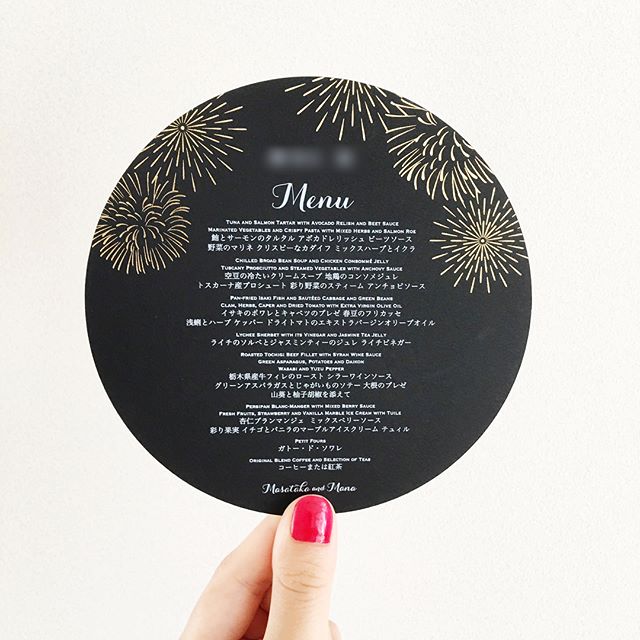 Menu
Tuna and Salmon Tartar with Avocado Relish and Beet Sauce
Marinated Vegetables and Crispy Pasta with Mixed Herbs and Salmon Roe
鮪とサーモンのタルタル アボカドレリッシュ ビーツソース
野菜のマリネ クリスピーなカダイフ ミックスハーブとイクラ
Chilled Broad Bean Soup and Chicken Consommé Jelly
Tuscany Prosciutto and Steamed Vegetables with Anchovy Sauce
空豆の冷たいクリームスープ 地鶏のコンソメジュレ
トスカーナ産プロシュート 彩り野菜のスティーム アンチョビソース
Pan-fried Isaki Fish and Sautéed Cabbage and Green Beans
Clam, Herbs, Caper and Dried Tomato with Extra Virgin Olive Oil
イサキのポワレとキャベツのブレゼ 春豆のフリカッセ
浅蜊とハーブ ケッパー ドライトマトのエキストラバージンオリーブオイル
Lychee Sherbet with its Vinegar and Jasmine Tea Jelly
ライチのソルベとジャスミンティーのジュレ ライチビネガー
Roasted Tochigi Beef Fillet with Syrah Wine Sauce
Green Asparagus, Potatoes and Daikon
Wasabi and Yuzu Pepper
栃木県産牛フィレのロースト シラーワインソース
グリーンアスパラガスとじゃがいものソテー 大根のブレゼ
山葵と柚子胡椒を添えて
Persipan Blanc-Manger with Mixed Berry Sauce
Fresh Fruits, Strawberry and Vanilla Marble Ice Cream with Tuile
杏仁ブランマンジェ ミックスベリーソース
彩り果実 イチゴとバニラのマーブルアイスクリーム テュイル
Petit Fours
ガトー・ド・ソワレ
Original Blend Coffee and Selection of Teas
コーヒーまたは紅茶
Masataka and Mana